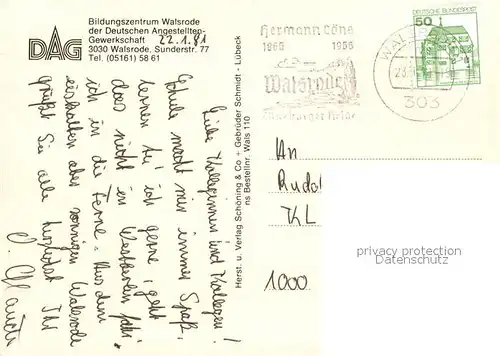 DAG
Bildungszentrum Walsrode
der Deutschen Angestellten-
Gewerkschaft 22.1.81
3030 Walsrode, Sunderstr. 77
Tel. (05161) 58 61
Liebe Kolleginnen und Kollegen!
Schule macht mir immer Spaß,
lernen tu' ich gerne, geht
das nicht in Westberlin, fahr'
ich in die Ferne. Aus dem
eiskalten aber sonnigen Walsrode
grüßt Sie alle herzlichst Ihr
Herst. u. Verlag Schöning & Co + Gebrüder Schmidt - Lübeck
ns Bestellnr. Wals 110
Hermann Löns
1866 1966
Walsrode
Lüneburger Heide
WALSRODE
303
DEUTSCHE BUNDESPOST
50
An
Rudol
KL
1000
privacy protection
Datenschutz